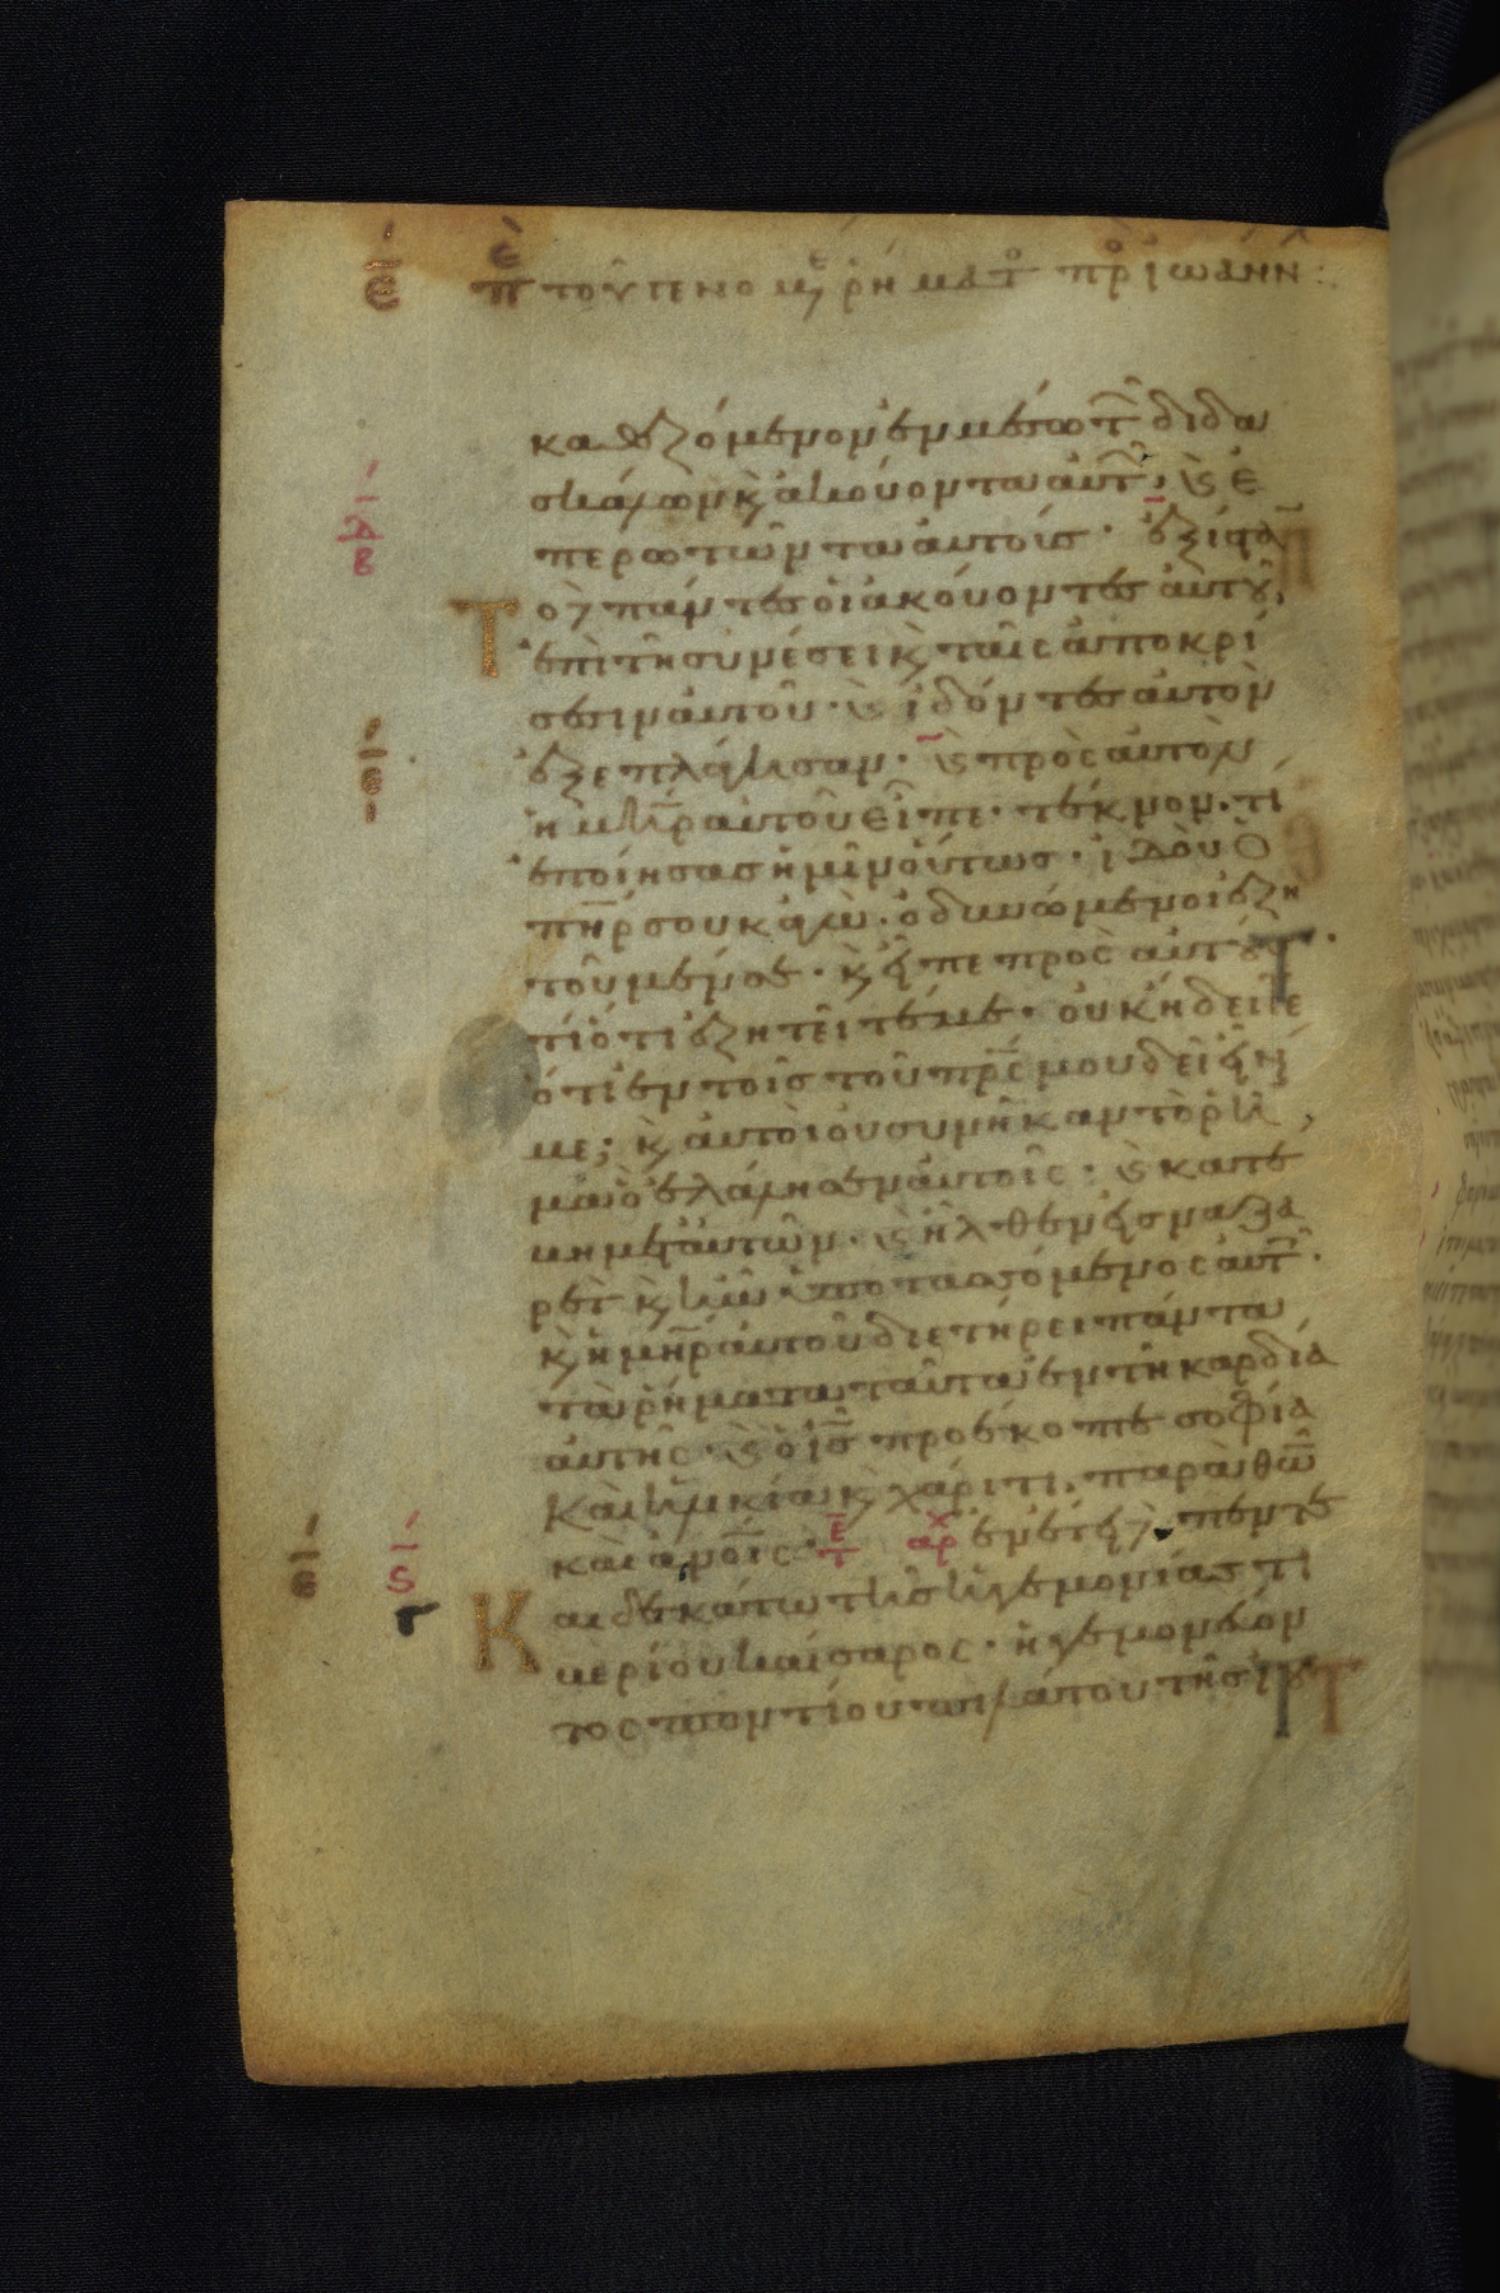 ε πε τοῦ γενομε ῥήματο προ ἰωάνν :
καθεζόμενον ἐν μέσω τῶ διδα
σκάλων κ ἀκούοντα αὐτῶ, κ ἐ
περωτῶντα αὐτούς · ἐξίσταν
Το δὲ πάντες οἱ ἀκούοντες αὐτοῦ,
ἐπὶ τῆ συνέσει κ ταῖς ἀποκρί
σεσιν αὐτοῦ · κ ἰδόντες αὐτὸν
ἐξεπλάγησαν · κ πρὸς αὐτὸν
ἡ μηρ αὐτοῦ εἶπε · τέκνον · τί
ἐποίησας ἡμῖν οὕτως · ἰδοὺ ὁ
πηρ σου κἀγὼ · ὀδυνώμενοι ἐζη
τοῦμέν σε · κ εἶπε πρὸς αὐτούς ·
τί ὅτι ἐζητεῖτέ με · οὐκ ἤδειτε
ὅτι ἐν τοῖς τοῦ πρς μου δεῖ εἶναί
με ; κ αὐτοὶ οὐ συνῆκαν τὸ ῥῆ
μα ὃ ἐλάλησεν αὐτοῖς · κ κατέ
βη μετ αὐτῶν · κ ἦλθεν εἰς ναζα
ρὲτ κ ἦν ὑποτασσόμενος αὐτ ·
κ ἡ μηρ αὐτοῦ διετήρει πάντα
τὰ ῥήματα ταῦτα ἐν τῆ καρδία
αὐτῆς · κ ὁ ις προέκοπτε σοφία
Καὶ ἡλικία κ χάριτι · παρὰ θω
καὶ ανοις · τε αρχ ἐν ἔτει δὲ πεντε
Και δεκάτω τῆς ἡγεμονίας τι
βερίου καίσαρος · ἡγεμονεύον
τος ποντίου πιλάτου τῆς ἰου
ιε
ιδ
β
ιε
ι
ιε
ις
Γ